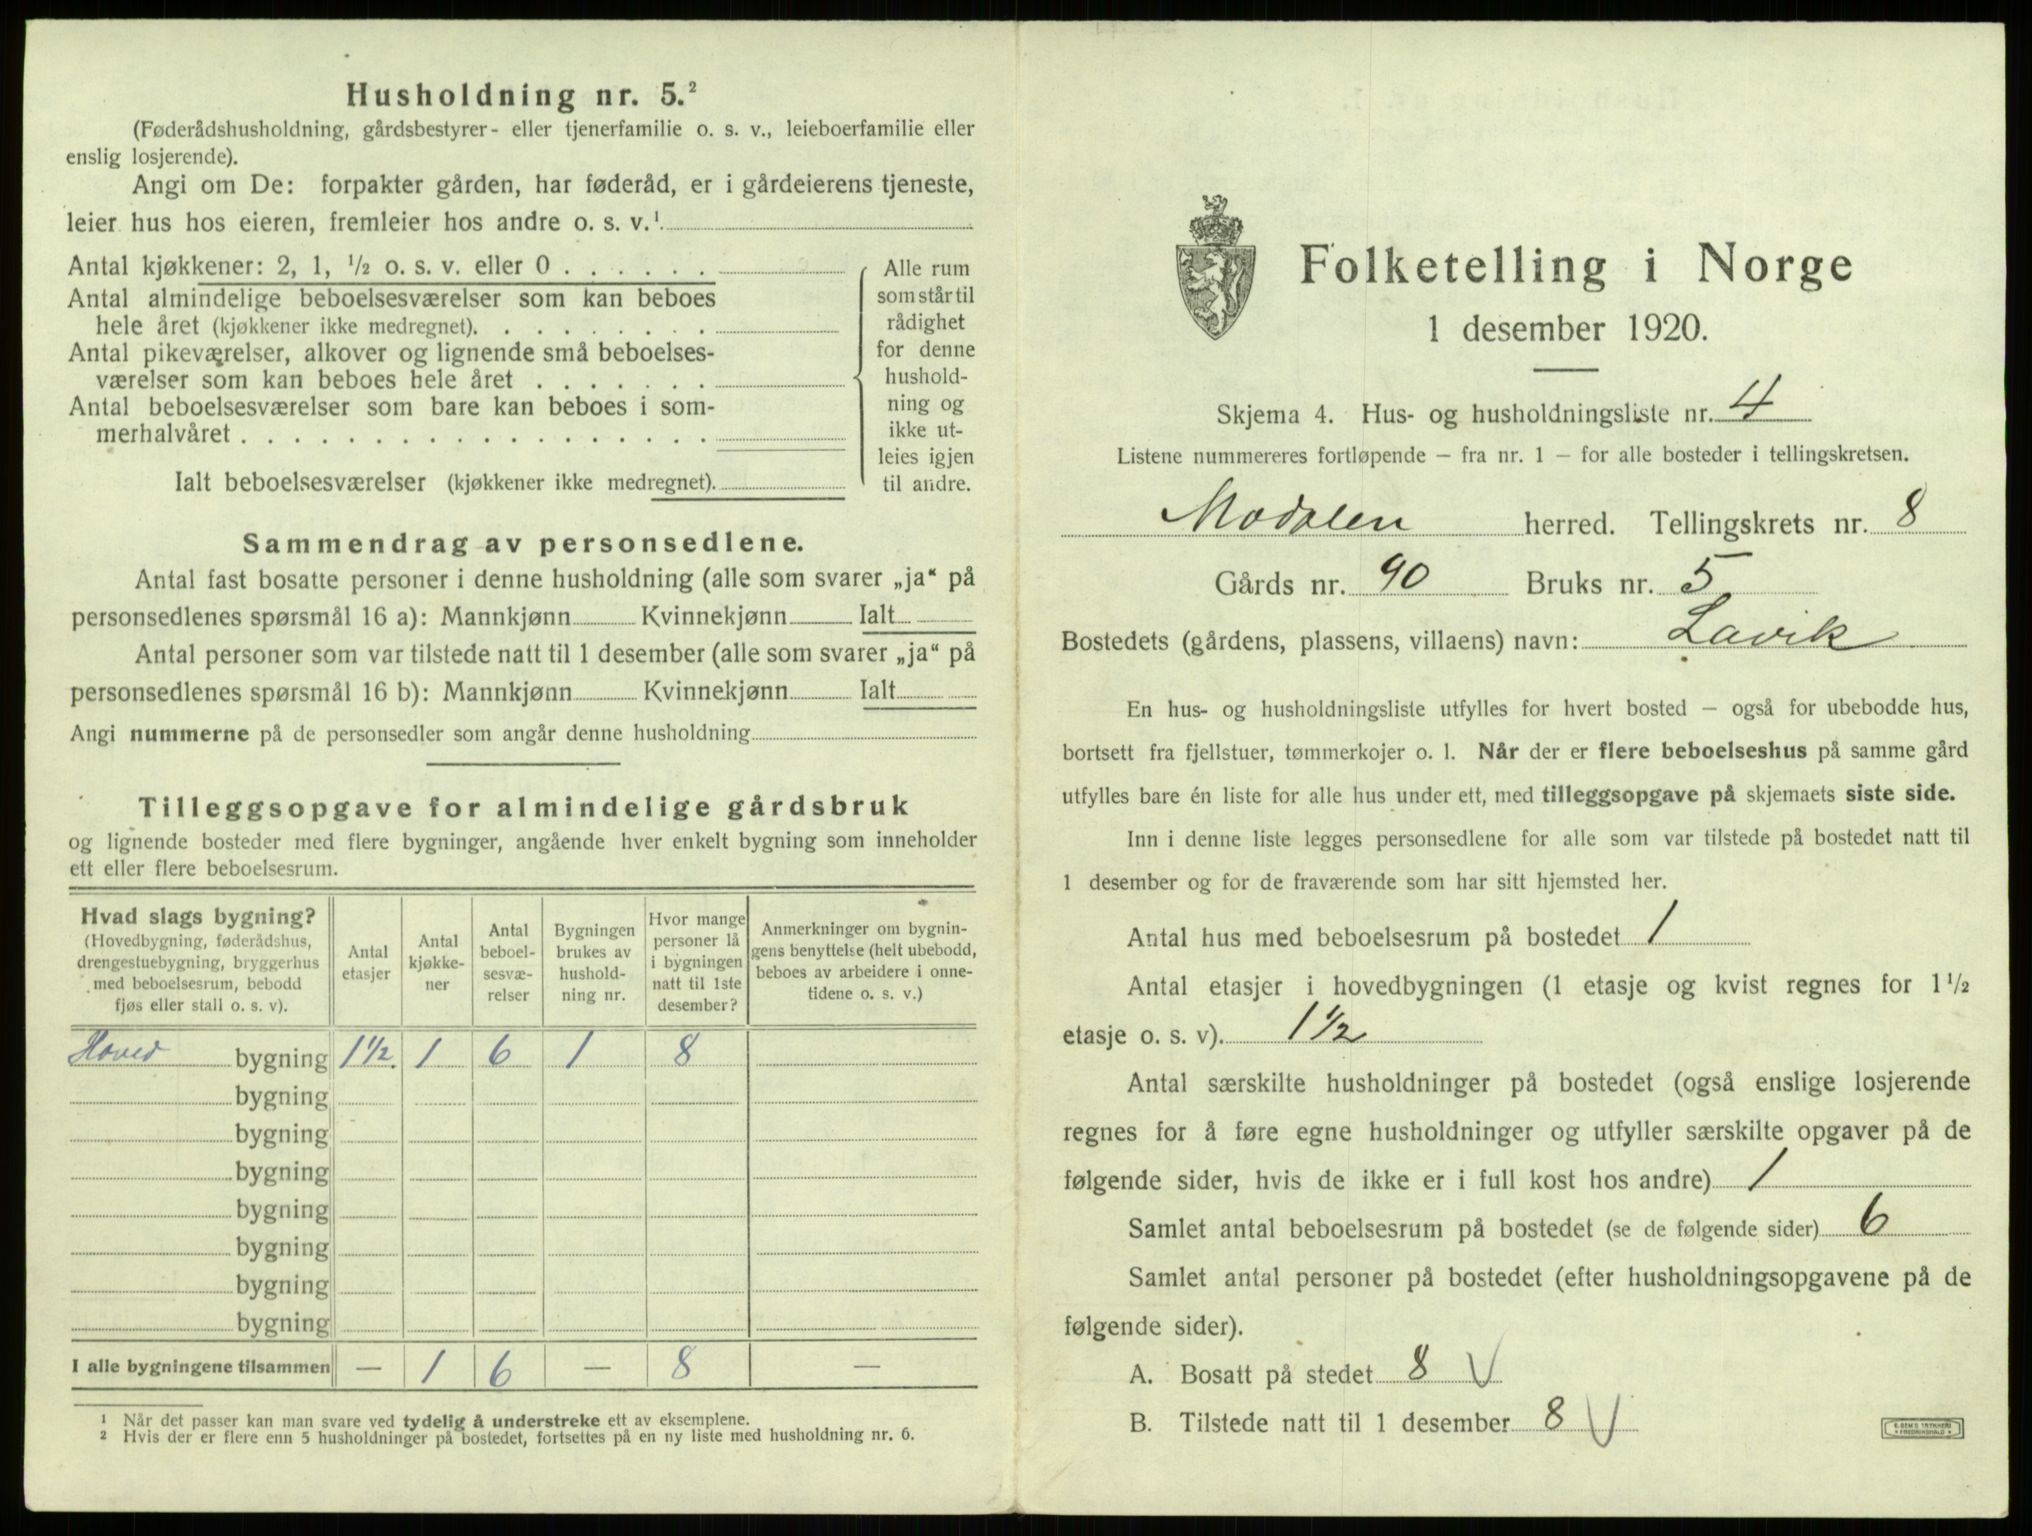 Husholdning nr. 5.²
(Føderådshusholdning, gårdsbestyrer- eller tjenerfamilie o. s. v., leieboerfamilie eller
enslig losjerende).
Angi om De: forpakter gården, har føderåd, er i gårdeierens tjeneste,
leier hus hos eieren, fremleier hos andre o. s. v.¹
Antal kjøkkener: 2, 1, ½ o. s. v. eller 0 . . . . . .
Antal almindelige beboelsesværelser som kan beboes
hele året (kjøkkener ikke medregnet). . . . . . . . .
Antal pikeværelser, alkover og lignende små beboelses-
værelser som kan beboes hele året . . . . . . .
Antal beboelsesværelser som bare kan beboes i som-
merhalvåret . . . . . . . . . . . . . . . . . .
Ialt beboelsesværelser (kjøkkener ikke medregnet).
Alle rum
som står til
rådighet
for denne
hushold-
ning og
ikke ut-
leies igjen
til andre.
Sammendrag av personsedlene.
Antal fast bosatte personer i denne husholdning (alle som svarer „ja“ på
personsedlenes spørsmål 16 a): Mannkjønn Kvinnekjønn Ialt
Antal personer som var tilstede natt til 1 desember (alle som svarer „ja“ på
personsedlenes spørsmål 16 b): Mannkjønn Kvinnekjønn Ialt
Angi nummerne på de personsedler som angår denne husholdning
Tilleggsopgave for almindelige gårdsbruk
og lignende bosteder med flere bygninger, angående hver enkelt bygning som inneholder
ett eller flere beboelsesrum.
Hvad slags bygning?
(Hovedbygning, føderådshus,
drengestuebygning, bryggerhus
med beboelsesrum, bebodd
fjøs eller stall o. s. v).
Antal
etasjer
Antal
kjøkke-
ner
Antal
beboel-
sesvæ-
relser
Bygningen
brukes av
hushold-
ning nr.
Hvor mange
personer lå
i bygningen
natt til 1ste
desember?
Anmerkninger om bygnin-
gens benyttelse (helt ubebodd,
beboes av arbeidere i onne-
tidene o. s. v.)
Hoved bygning 1½. 1 6 1 8
bygning
bygning
bygning
bygning
bygning
bygning
bygning
I alle bygningene tilsammen — 1 6 — 8 —
¹ Når det passer kan man svare ved tydelig å understreke ett av eksemplene.
² Hvis der er flere enn 5 husholdninger på bostedet, fortsettes på en ny liste med husholdning nr. 6.
Folketelling i Norge
1 desember 1920.
Skjema 4. Hus- og husholdningsliste nr. 4
Listene nummereres fortløpende – fra nr. 1 – for alle bosteder i tellingskretsen.
Modalen herred. Tellingskrets nr. 8
Gårds nr. 90 Bruks nr. 5
Bostedets (gårdens, plassens, villaens) navn: Lavik
En hus- og husholdningsliste utfylles for hvert bosted – også for ubebodde hus,
bortsett fra fjellstuer, tømmerkojer o. l. Når der er flere beboelseshus på samme gård
utfylles bare én liste for alle hus under ett, med tilleggsopgave på skjemaets siste side.
Inn i denne liste legges personsedlene for alle som var tilstede på bostedet natt til
1 desember og for de fraværende som har sitt hjemsted her.
Antal hus med beboelsesrum på bostedet 1
Antal etasjer i hovedbygningen (1 etasje og kvist regnes for 1½
etasje o. s. v). 1½
Antal særskilte husholdninger på bostedet (også enslige losjerende
regnes for å føre egne husholdninger og utfyller særskilte opgaver på de
følgende sider, hvis de ikke er i full kost hos andre) 1
Samlet antal beboelsesrum på bostedet (se de følgende sider) 6
Samlet antal personer på bostedet (efter husholdningsopgavene på de
følgende sider).
A. Bosatt på stedet 8 V
B. Tilstede natt til 1 desember 8 V